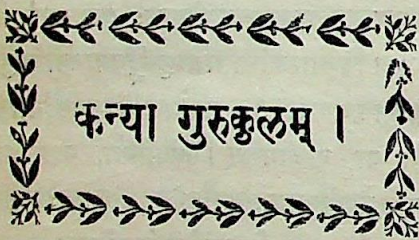 कन्या गुरुकुलम् ।